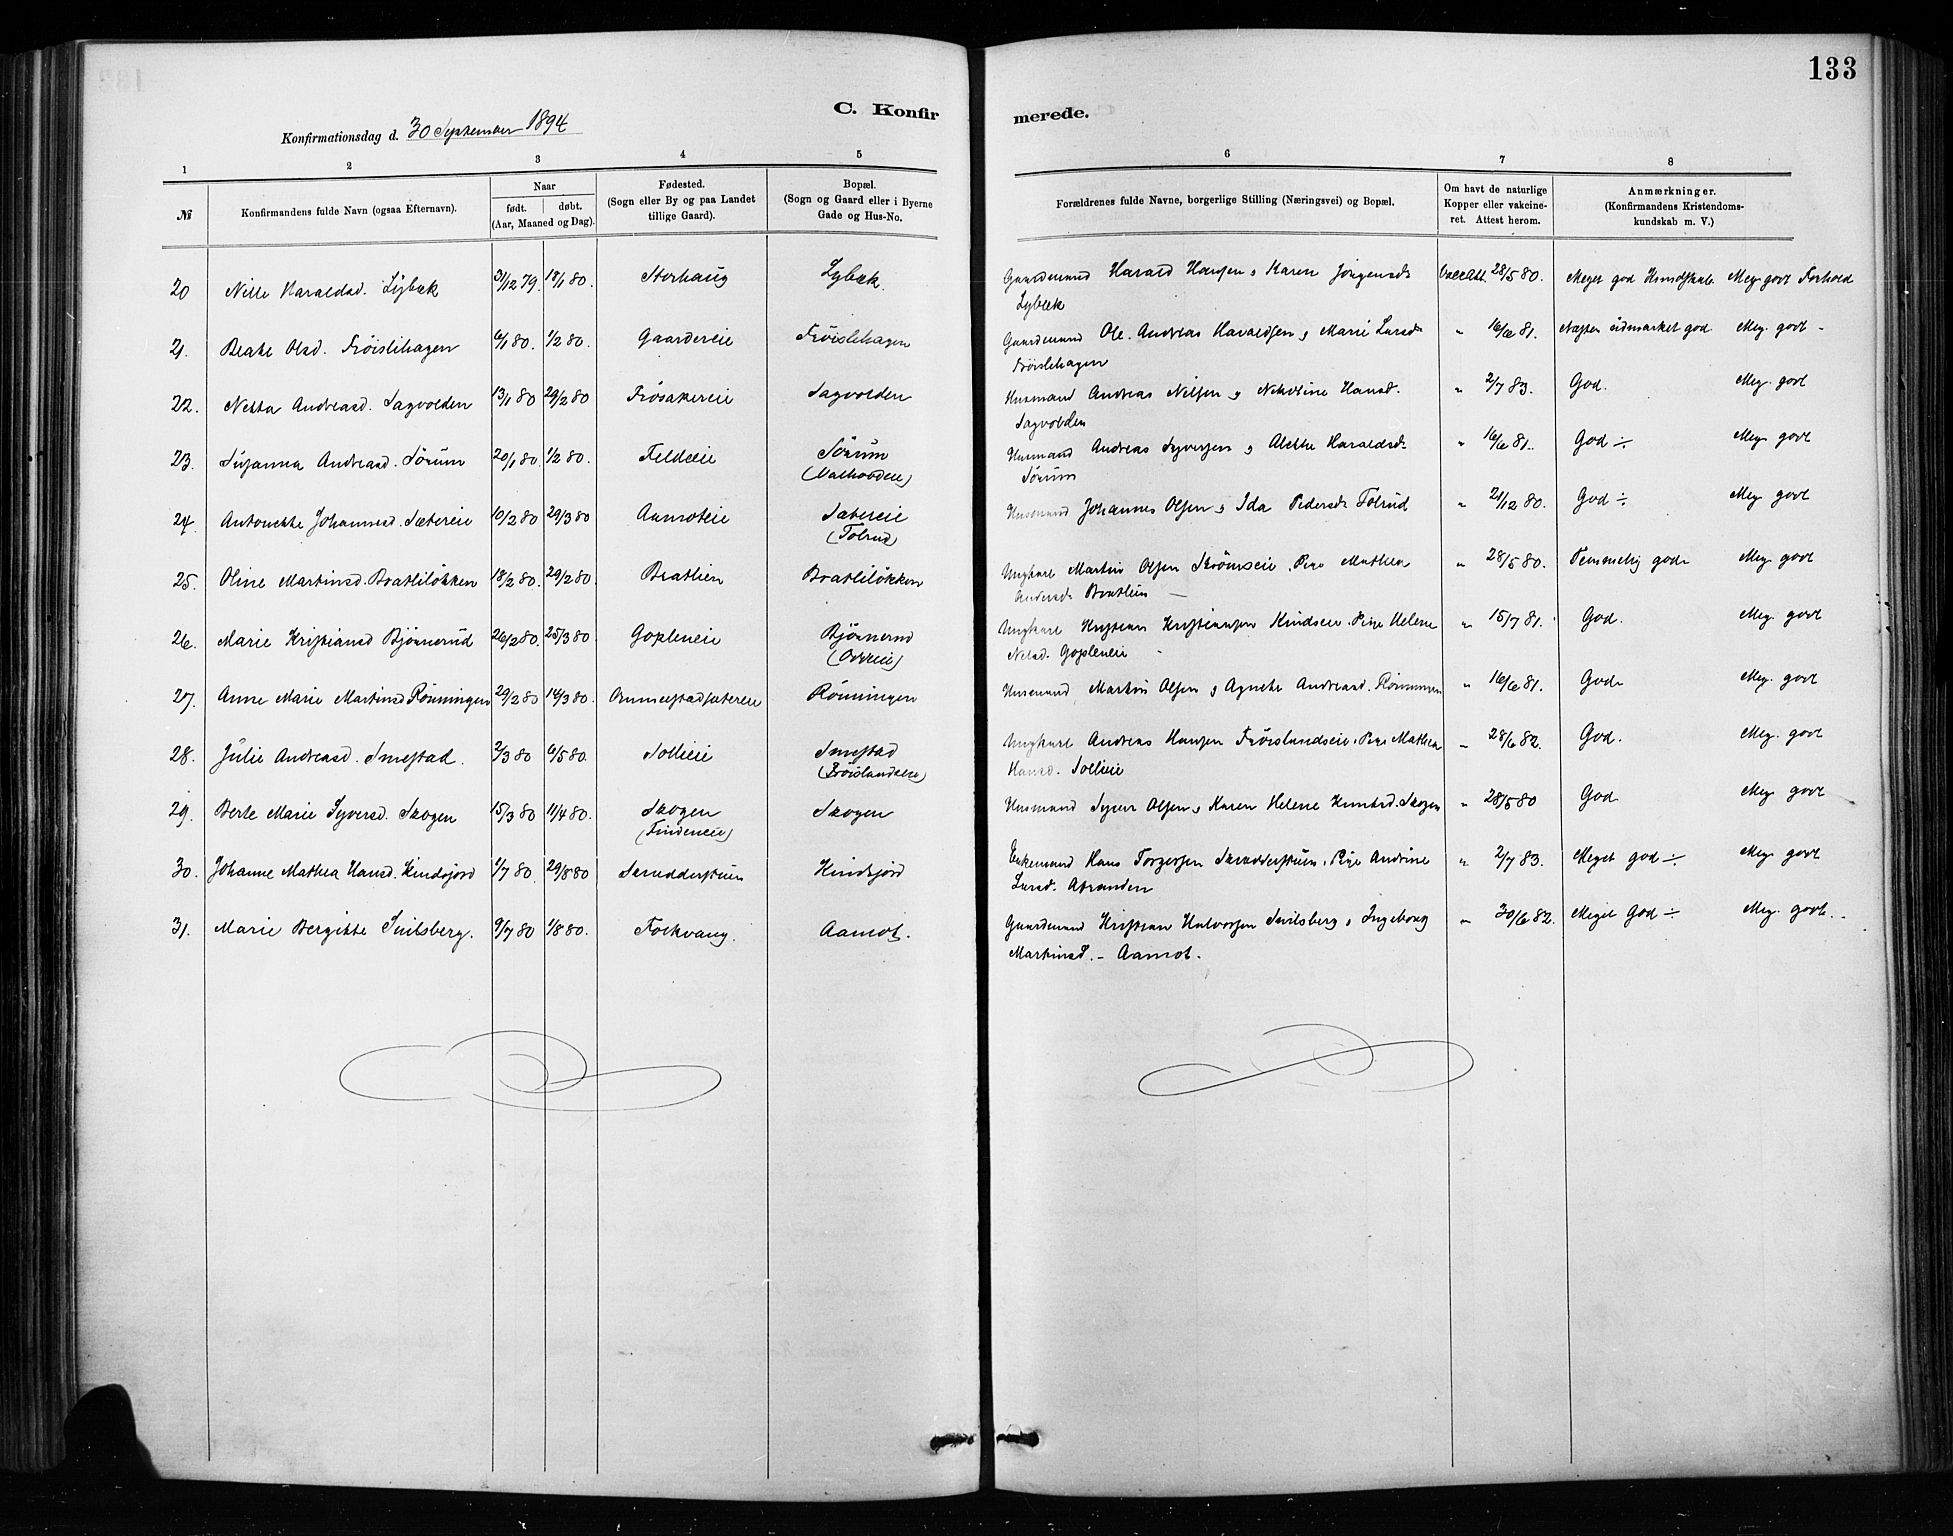 133
C. Konfir
merede.
Konfirmationsdag d. 30 September 1894
1 2 3 4 5
6 7 8
№ Konfirmandens fulde Navn (ogsaa Efternavn). Naar født. døbt. (Aar, Maaned og Dag). Fødested. (Sogn eller By og paa Landet tillige Gaard). Bopæl. (Sogn og Gaard eller i Byerne Gade og Hus-No.
Forældrenes fulde Navne, borgerlige Stilling (Næringsvei) og Bopæl. Om havt de naturlige Kopper eller vakcineret. Attest herom. Anmærkninger. (Konfirmandens Kristendomskundskab m. V.)
20 Nille Haraldsd. Lybæk 31/12 79. 18/1 80. Storhaug Lybæk.
Gaardmand Harald Hansen og Karen Jörgensd. 28/5 80. Meget god Kundskab. Meg. godt Forhold
Lybæk
21. Beate Olsd. Fröislihagen 6/1 80. 1/2 80. Gaardereie Fröislihagen
Gaardmand Ole Andreas Haraldsen og Marie Larsd. " 16/6 81. Næsten udmærket god Meg. godt -
Fröislihagen
22. Netta Andreasd. Sagvolden 13/1 80 29/2 80 Frösakereie Sagvolden
Husmand Andreas Nilsen og Nikoline Hansd. " 2/7 83. God. Meg. godt
Sagvolden
23. Susanna Andreasd. Sörum 20/1 80. 1/2 80. Feldeie Sörum
Husmand Andreas Syversen og Alette Haraldsd. " 16/6 81. God ÷ Meg. godt
Sörum
24. Antonette Johannesd. Sætereie 10/2 80 29/3 80 Aamoteie Sætereie
(Tolrud)
Husmand Johannes Olsen og Ida Pedersd. Tolrud " 21/12 80. God ÷ Meg. godt
25. Oline Martinsd. Bratliløkken 18/2 80. 29/2 80. Bratlien Bratliløkken
Ungkarl Martin Olsen Strömseie, Pige Mathea " 28/5 80. Temmelig god. Meg. godt
Andersd. Bratlein
26. Marie Kristiansd Bjönnerud 26/2 80. 25/3 80 Gopleneie Bjönnerud
Ungkarl Kristian Kristiansen Kindseie. Pige Helene " 15/7 81. God. Meg. godt
Nelsd. Gopleneie
27. Anne Marie Martinsd Rönningen 29/2 80 14/3 80. Rönningen
Husmand Martin Olsen og Agnete Andreasd. " 16/6 81. God. Meg. godt
28. Julie Andreasd. Smestad. 2/3 80 6/5 80. Sollieie Smestad
(Fröislandseie)
Ungkarl Andreas Hansen Fröislandseie, Pige Mathea " 28/6 82. God. Meg. godt
Hansd. Sollieie
29. Berte Marie Syversd. Skogen 15/3 80 11/4 80. Skogen Skogen
Husmand Syver Olsen og Karen Helene Knutsd. Skogen " 28/5 80 God Meg. godt
30. Johanne Mathea Hansd. Kindsjord 1/7 80. 29/8 80 Skrudderstuen Kindsjord
Enkemand Hans Torgersen Skrudderstuen, Pige Andrine " 2/7 83. Meget god ÷. Meg. godt
Larsd. Østranden
31. Marie Bergitte Snilsberg. 9/7 80 1/8 80. Folkvang. Aamot.
Gaardmand Kristian Halvorsen Snilsberg og Ingeborg " 30/6 82. Meget God ÷ Meg. godt.
Martinsd. - Aamot.